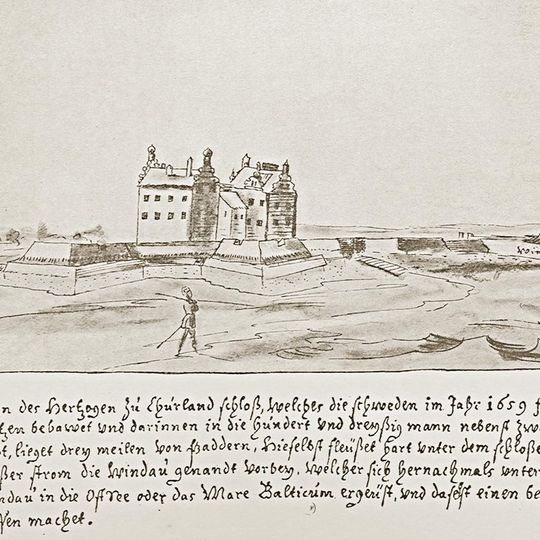 Win
n des Hertzogen zu Churland schloß, welches die schweden im Jahr 1659 f
tzen bebawet und darinnen in die hundert und dreyßig mann nebenst zw
t, lieget drey meilen von Haddern, Hieselbst fleüßet hart unter dem schloße
ßer strom die Windau genandt vorbey, welcher sich hernachmals unter
ndau in die OstSee oder das Mare Balticum ergeüst, und daselst einen be
fen machet.